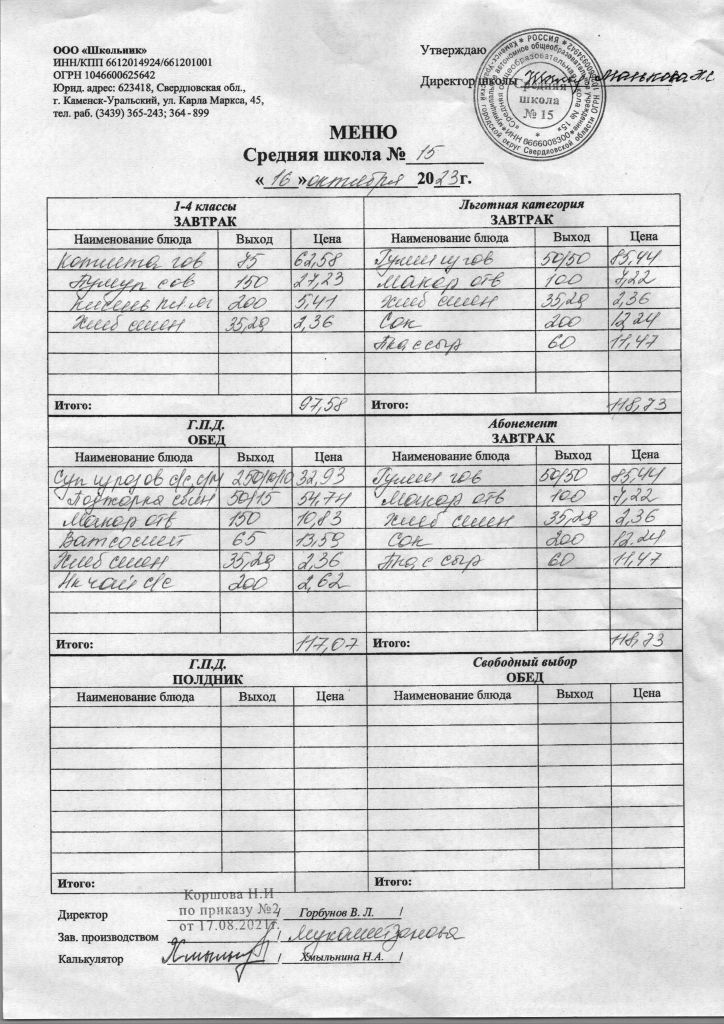 ООО «Школьник»
ИНН/КПП 6612014924/661201001
ОГРН 1046600625642
Юрид. адрес: 623418, Свердловская обл.,
г. Каменск-Уральский, ул. Карла Маркса, 45,
тел. раб. (3439) 365-243; 364 - 899
Утверждаю
Директор школы
РОССИЯ
средняя
школа
№ 15
МЕНЮ
Средняя школа № 15
« 16 » октября 2023г.
1-4 классы
ЗАВТРАК
Наименование блюда Выход Цена
Котлета гов 75 62,58
150 27,23
Кисель 200 5,41
Хлеб смен 35,29 2,36
Итого: 97,58
Льготная категория
ЗАВТРАК
Наименование блюда Выход Цена
Гуляш гов 50/50 85,44
Макар отв 100 7,22
Хлеб смен 35,29 2,36
Сок 200 12,24
Тка с сыр 60 11,47
Итого: 118,73
Г.П.Д.
ОБЕД
Наименование блюда Выход Цена
Суп 250/10/10 32,93
Поджарка свин 50/15 54,74
Макар отв 150 10,83
65 13.59
Хлеб смен 35,29 2,36
чай с/с 200 2,62
Итого: 117,07
Абонемент
ЗАВТРАК
Наименование блюда Выход Цена
Гуляш гов 50/50 85,44
Макар отв 100 7,22
Хлеб смен 35,29 2,36
Сок 200 12.24
Тка с сыр 60 11,47
Итого: 118,73
Г.П.Д.
ПОЛДНИК
Наименование блюда Выход Цена
Итого:
Свободный выбор
ОБЕД
Наименование блюда Выход Цена
Итого:
Коршова Н.И
по приказу №2
от 17.08.2021г.
Директор / Горбунов В. Л. /
Зав. производством /
Калькулятор / Хмыльнина Н.А. /